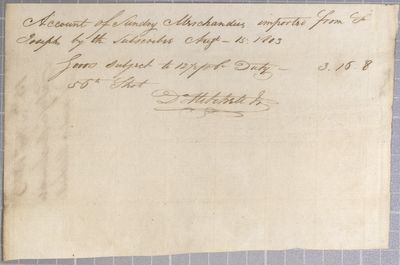 Account of Sundry Merchandise imported from St
Joseph by the Subscriber Augt 15 1803
Goods subject to 12½ pCt Duty — 3.16.8
56 lb Shot